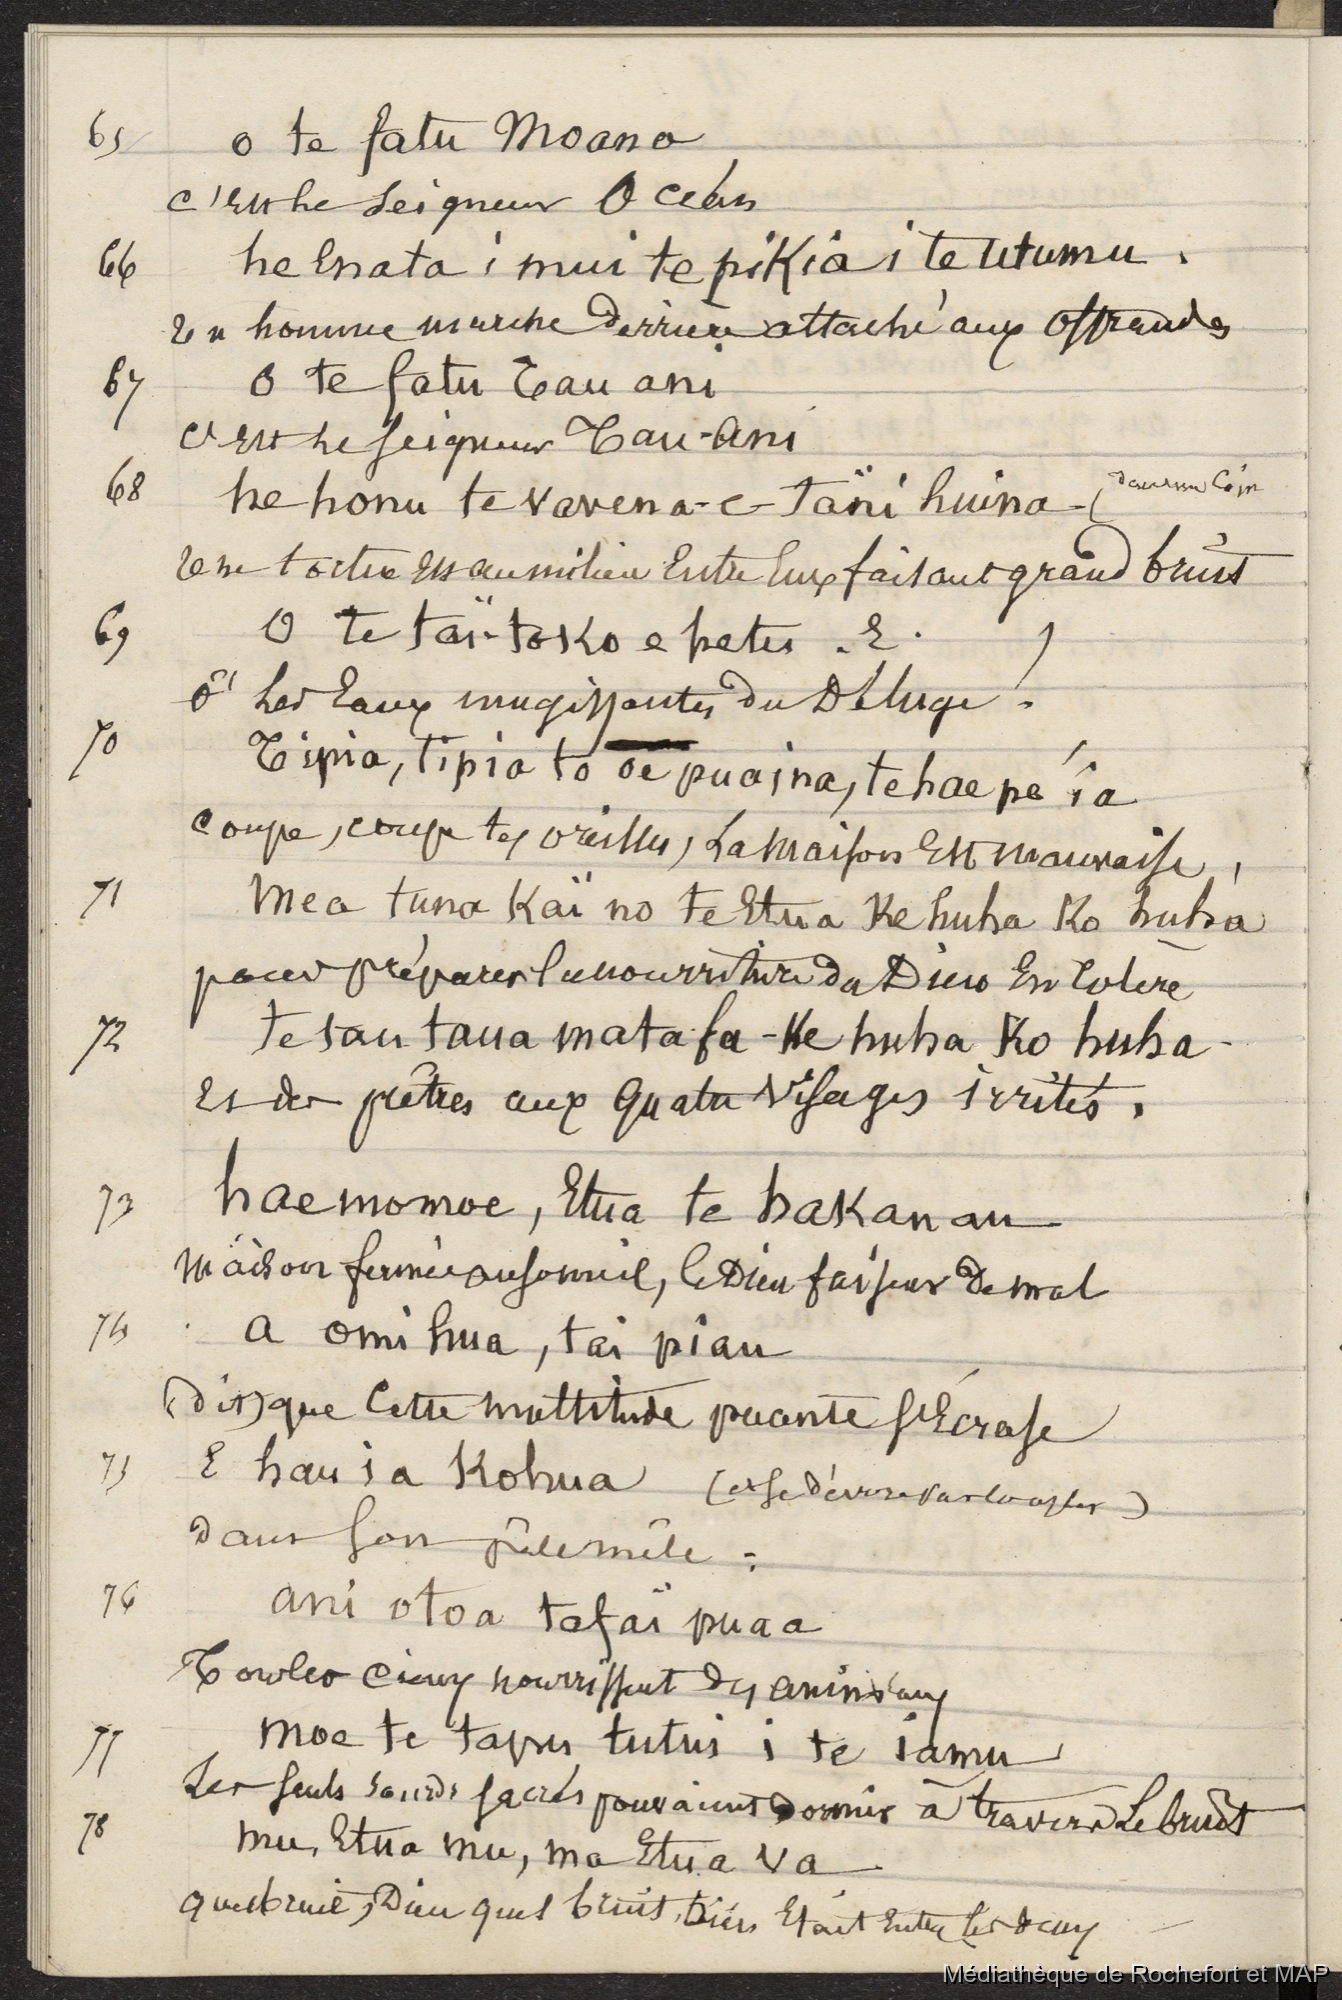 65 o te fatu Moana
c'est le seigneur Océan
66 he Enata i mui te pikia i te utumu.
Un homme marche derrière attaché aux offrandes
67 O te fatu Tau ani
c'est le seigneur Tau-Ani
68 he honu te vavena-e-täni huina (dans un coin
Une tortue est au milieu Entre Eux faisant grand bruit
69 O te taï-toko e hetu. E.
ô! Les Eaux mugissantes du Déluge!
70 Tipia, tipia to oe puaina, te hae pe ia
coupe, coupe tes oreilles, La Maison Est mauvaise,
71 Mea tuna Kaï no te Etua Ke huha Ko huha
pour préparer la nourriture du Dieu En Colère
72 te tau taua mata fa - Ke huha Ko huha -
Et des prêtres aux quatre Visages irrités.
73 hae momoe, Etua te hakanau
Maison fermée au sommeil, le Dieu faiseur de mal
74 a omi hua, tai piau
(dit) que Cette multitude puante s'Ecrase
75 E hau ia Kohua (et se dévore par couples)
Dans son pêle mêle.
76 ani otoa tafaï puaa
Tous les Cieux nourrissent des animaux
77 moe te tapu tutui i te iamu
Les seuls sourds sacrés pouvaient dormir à travers Le bruit
78 mu, Etua mu, ma Etua va
quel bruit, Dieu quel bruit, Dieu Etait Entre les deux
Médiathèque de Rochefort et MAP